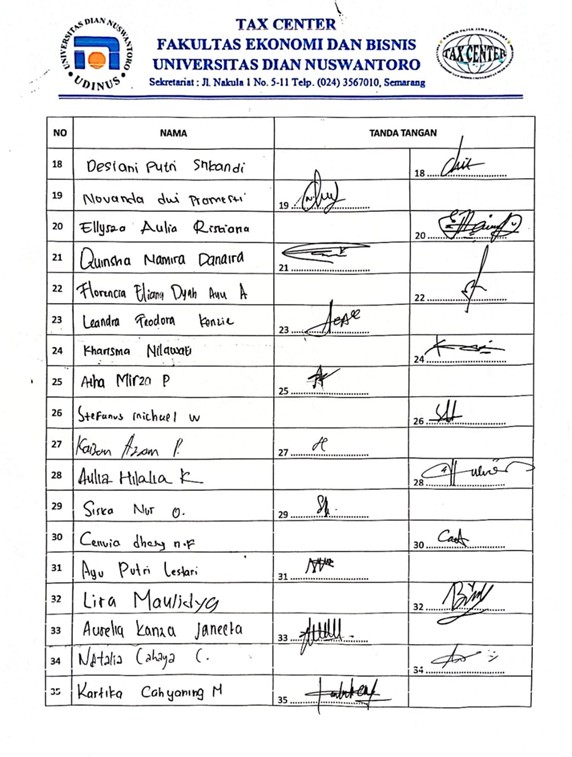 TAX CENTER
FAKULTAS EKONOMI DAN BISNIS
UNIVERSITAS DIAN NUSWANTORO
Sekretariat : Jl. Nakula 1 No. 5-11 Telp. (024) 3567010, Semarang
UNIVERSITAS DIAN NUSWANTORO
UDINUS
TAX CENTER
NO NAMA TANDA TANGAN
18 Desiani Putri Srikandi 18
19 Novanda dwi Prameswi 19
20 Ellysza Aulia 20
21 Quinsha Namira Danaira 21
22 Florencia Eliana Dyah Ayu A 22
23 Leandra Teodora Kenzie 23
24 Kharisma Nilawati 24
25 Mirza P 25
26 Stefanus michael W 26
27 Azam P. 27
28 Aulia Hilalia K 28
29 Siska Nur O. 29
30 Cenvia n.F 30
31 Ayu Putri Lestari 31
32 Lira Maulidya 32
33 Aurelia Kanza Janeeta 33
34 Natalia Cahaya C. 34
35 Kartika Cahyaning M 35